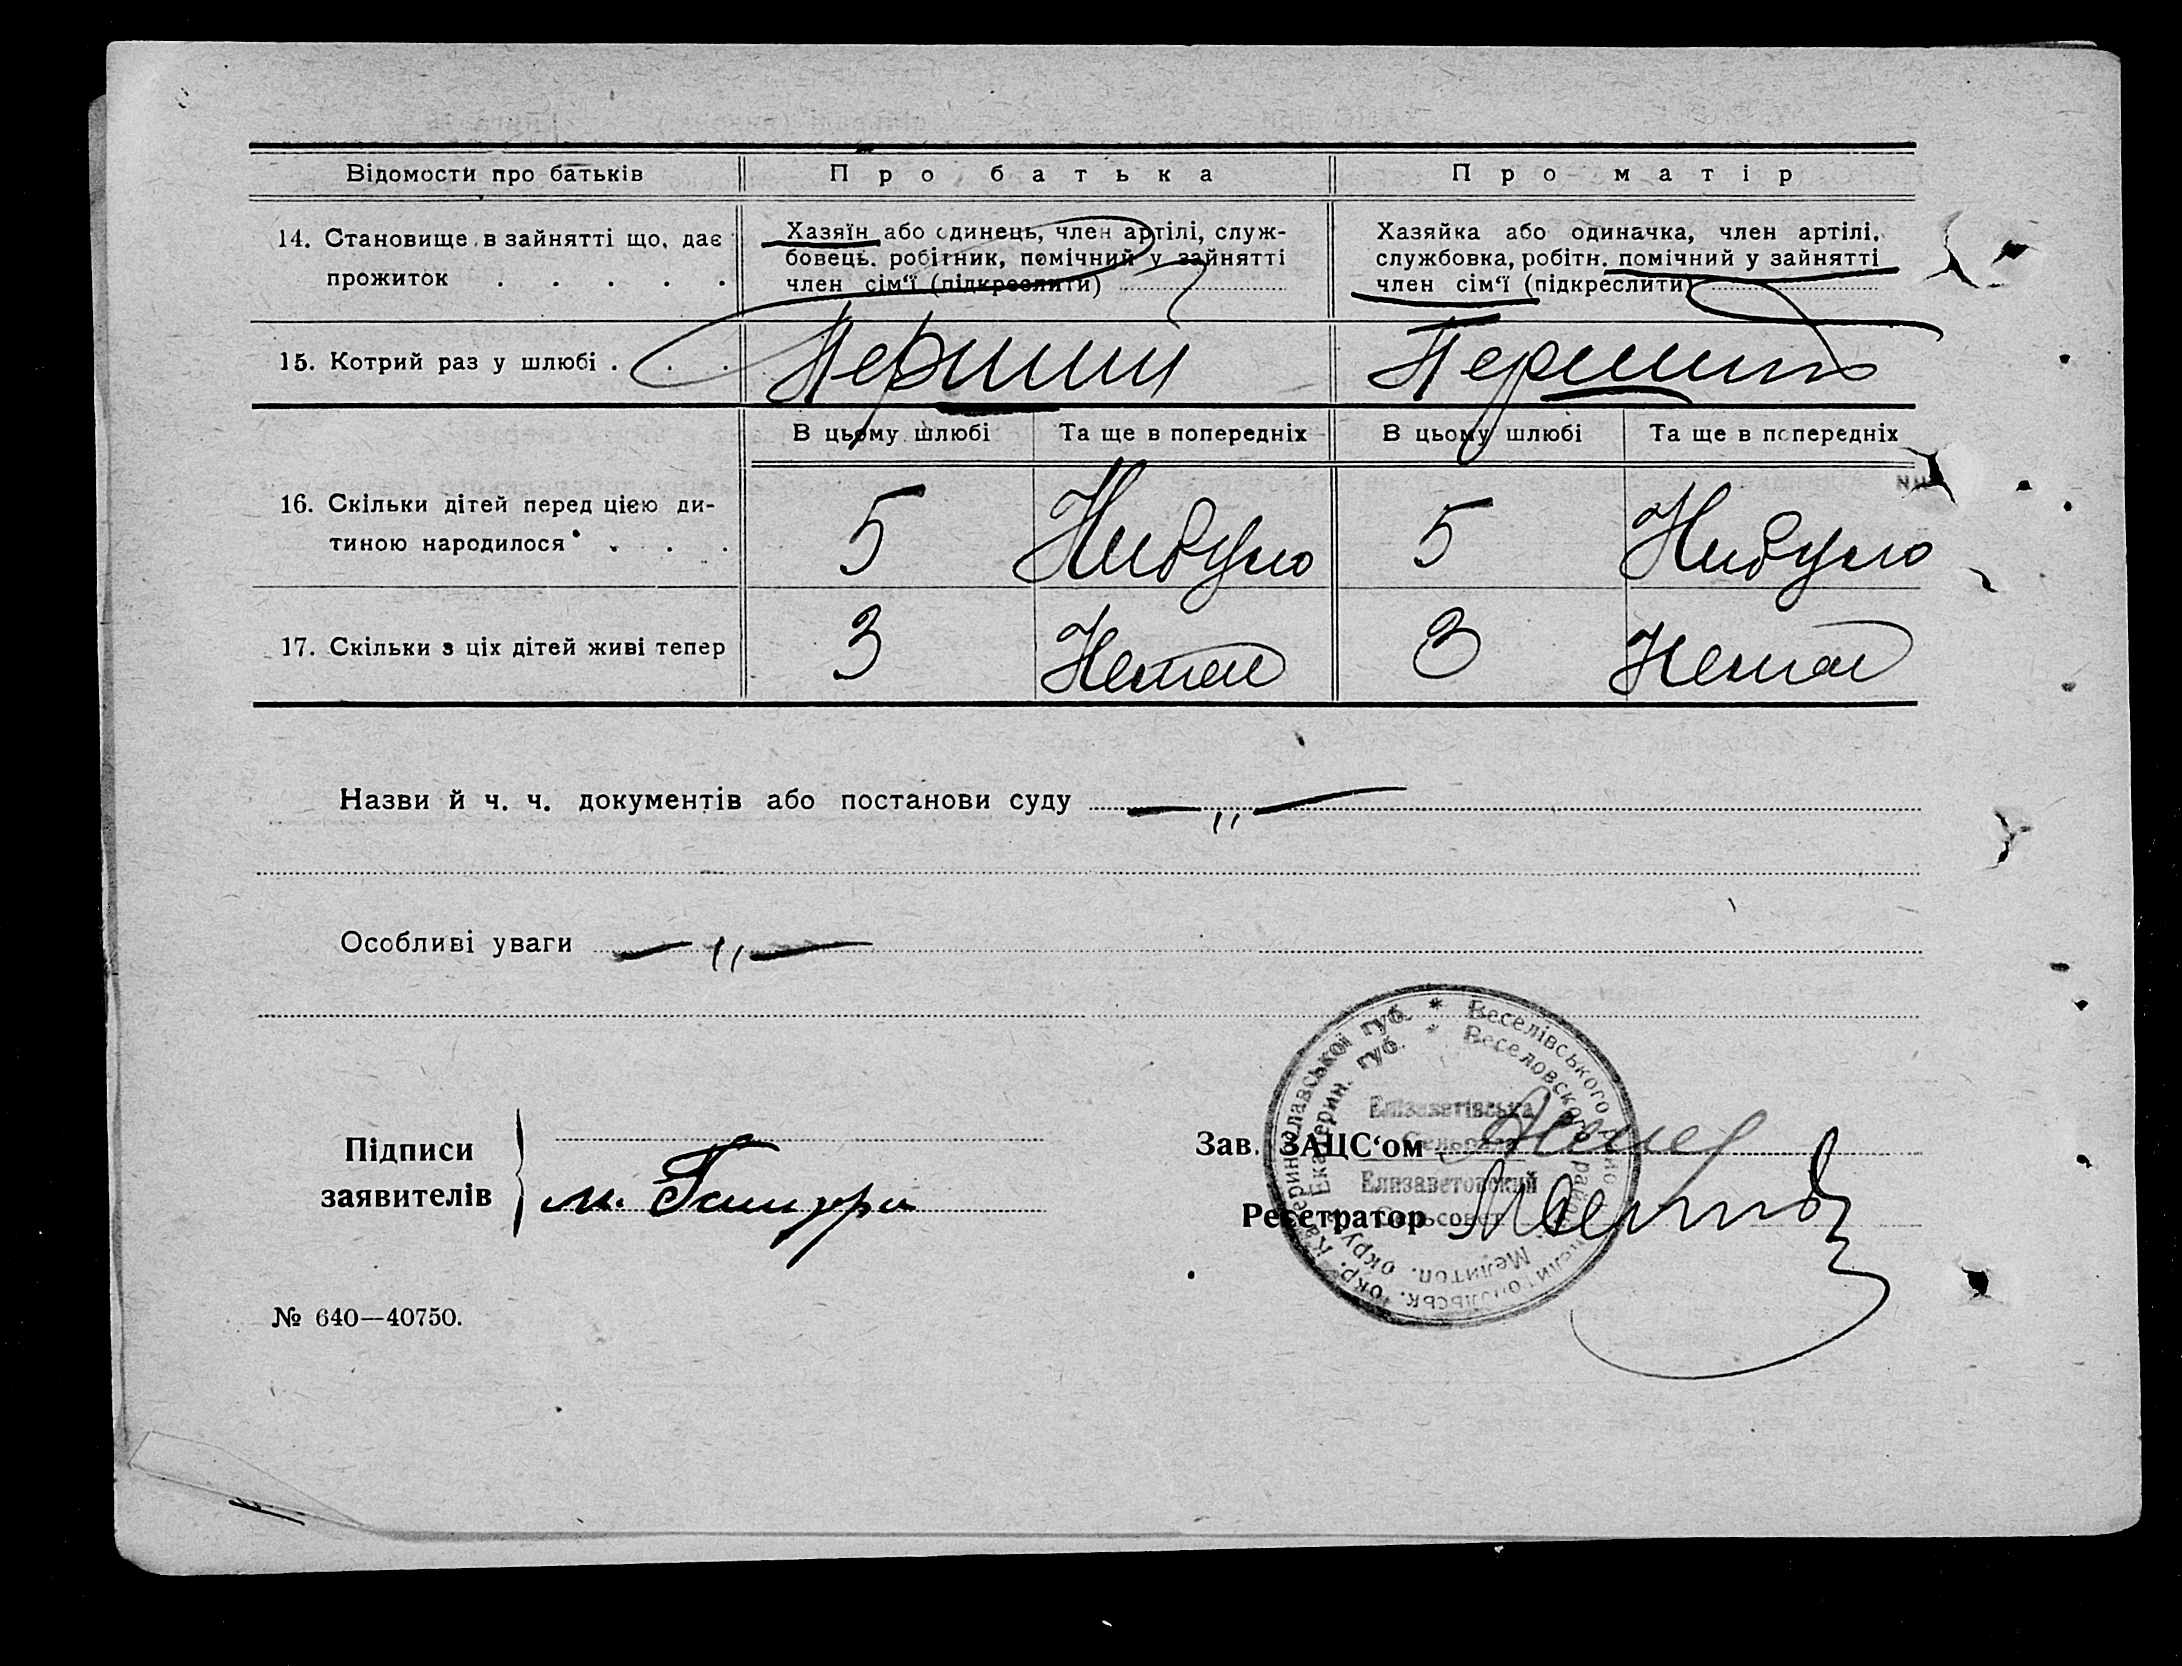 Відомости про батьків Про батька Про матір
14. Становище в зайнятті що, дає прожиток . . . . .
Хазяїн або одинець, член артілі, служ-
бовець. робітник, помічний у зайнятті
член сім‘ї (підкреслити)
Хазяйка або одиначка, член артілі,
службовка, робітн. помічний у зайнятті
член сім‘ї (підкреслити)
15. Котрий раз у шлюбі . . . Перший Перший
В цьому шлюбі Та ще в попередніх В цьому шлюбі Та ще в попередніх
16. Скільки дітей перед цією ди-
тиною народилося . . . 5 Нибуло 5 Нибуло
17. Скільки з ціх дітей живі тепер 3 Немає 3 Немає
Назви й ч. ч. документів або постанови суду — ,, —
Особливі уваги — ,, —
Підписи
заявителів
м.
Зав. ЗАЦС‘ом
Реєстратор
окр. Катеринославської губ. * Веселівського
округа Екатерин. губ. * Веселовского район.
Мелитоп.
Елізаветівська
Сельрада
Елизаветовский
Сельсовет
№ 640—40750.